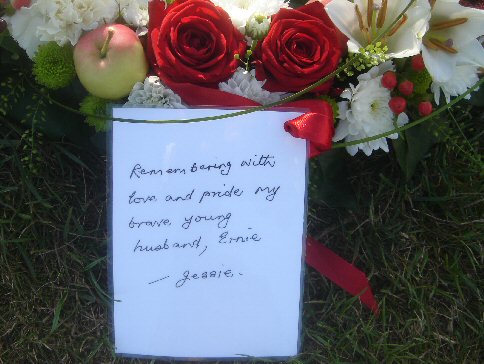 Remembering with
love and pride my
brave young
husband, Ernie
— Jessie.